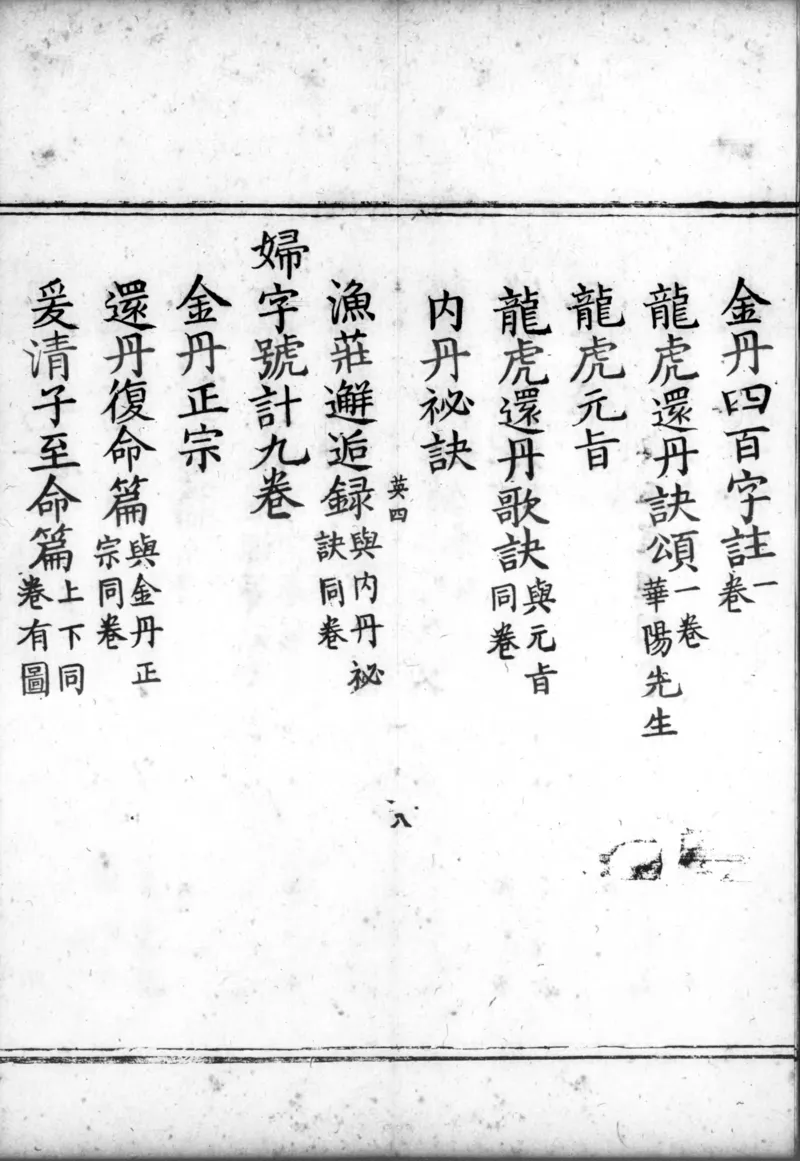 金丹四百字註一卷
龍虎還丹訣頌一卷華陽先生
龍虎元旨
龍虎還丹歌訣與元旨同卷
内丹祕訣
英四
八
漁莊邂逅録與内丹祕訣同卷
婦字號計九卷
金丹正宗
還丹復命篇與金丹正宗同卷
爰清子至命篇上下同卷有圖